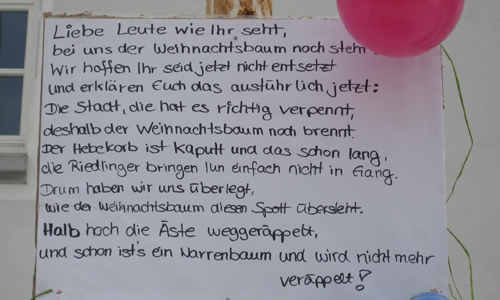 Liebe Leute wie Ihr seht,
bei uns der Weihnachtsbaum noch steht.
Wir hoffen Ihr seid jetzt nicht entsetzt
und erklären Euch das ausführlich jetzt:
Die Stadt, die hat es richtig verpennt,
deshalb der Weihnachtsbaum noch brennt.
Der Hebekorb ist kaputt und das schon lang,
die Riedlinger bringen ihn einfach nicht in Gang.
Drum haben wir uns überlegt,
wie der Weihnachtsbaum diesen Spott übersteht.
Halb hoch die Äste weggeräppelt,
und schon ist's ein Narrenbaum und wird nicht mehr
veräppelt!